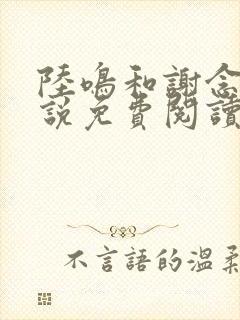 陸鳴和謝念
說免費閱讀
不言語的溫柔